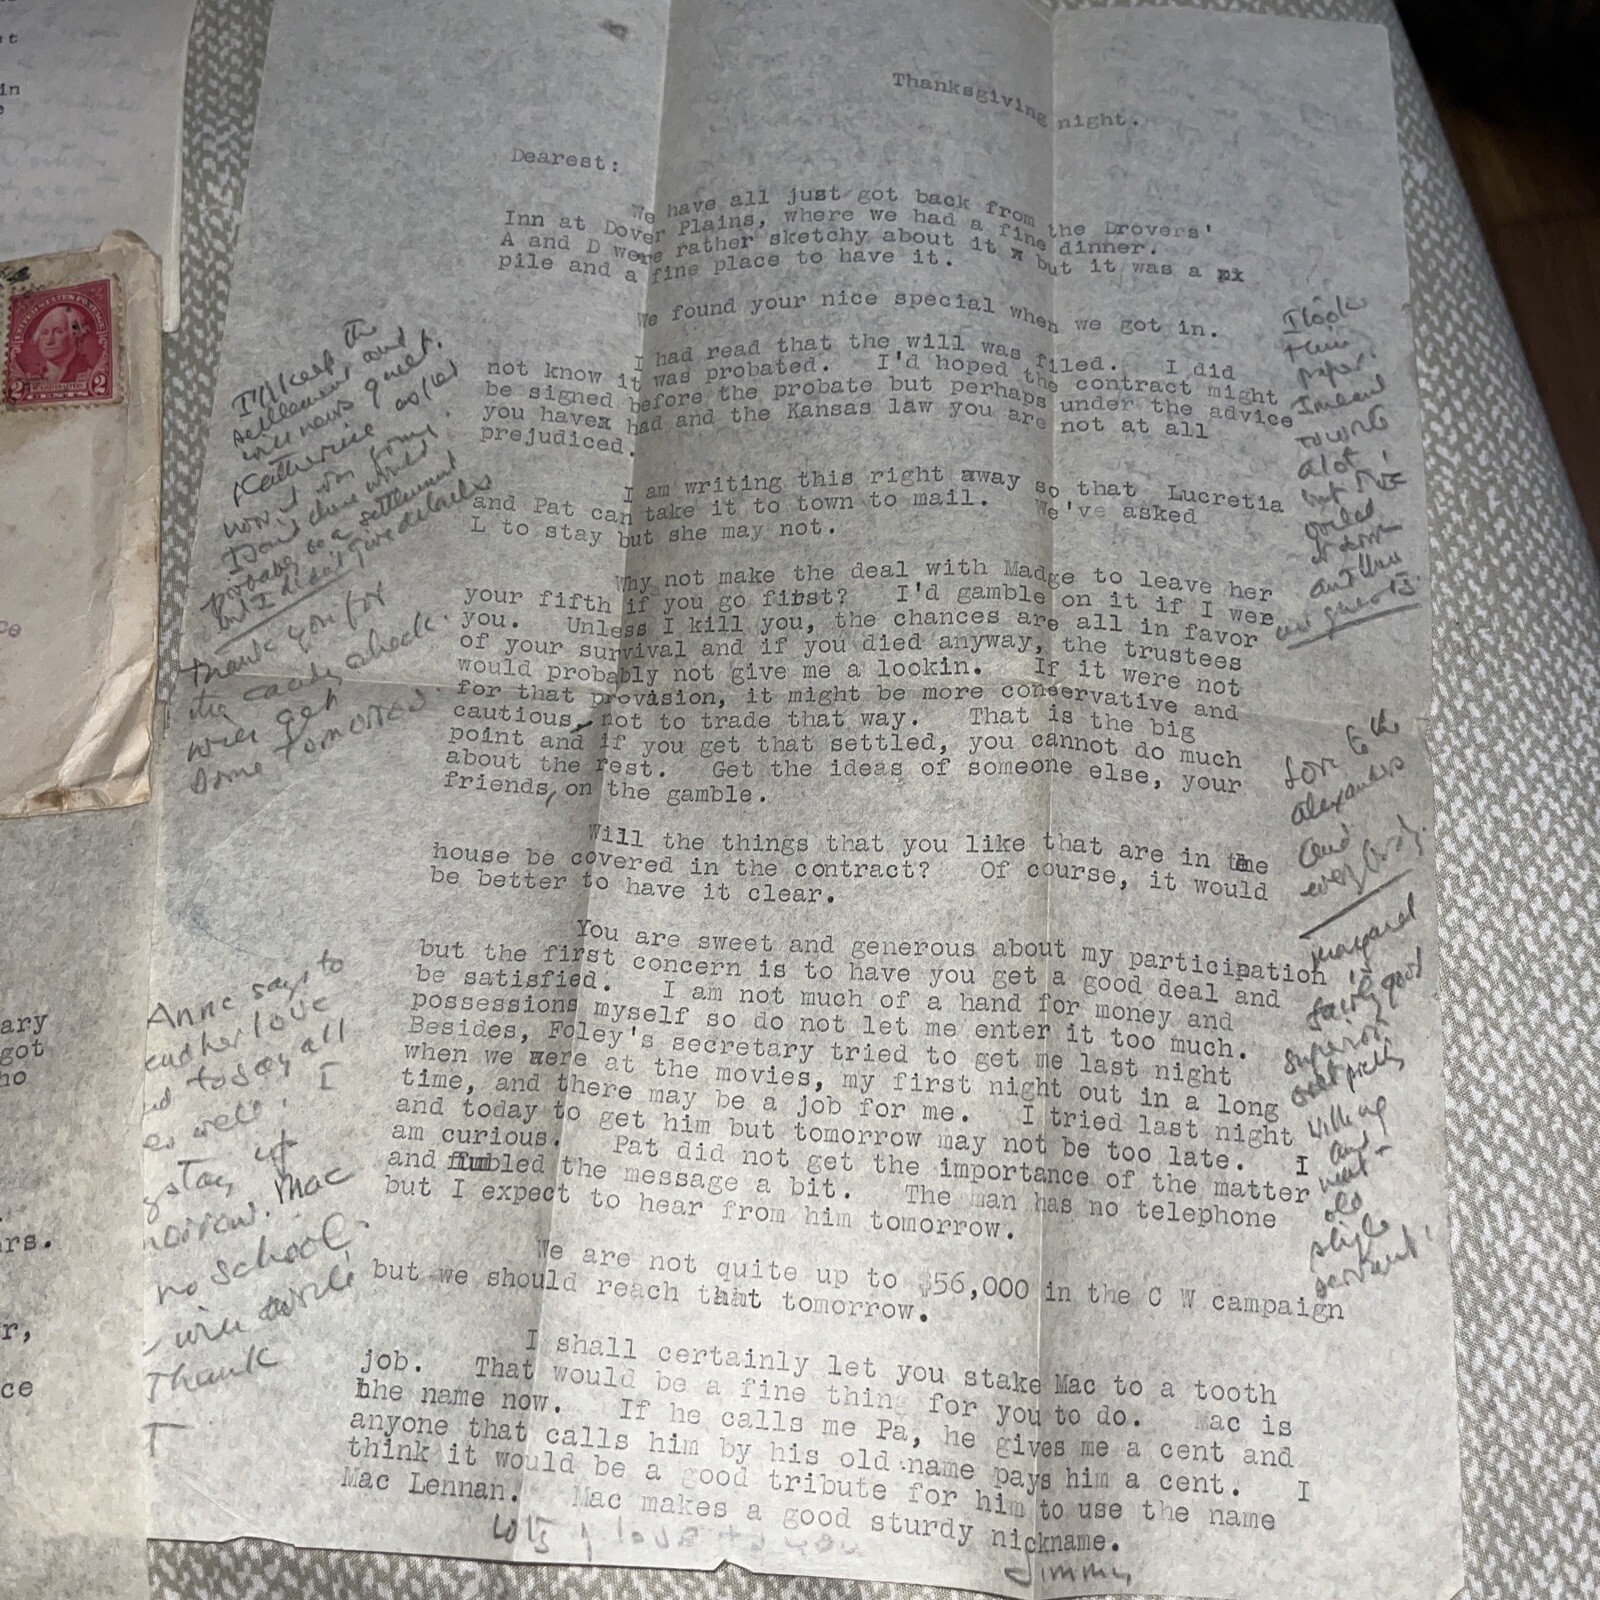 Thanksgiving night.
Dearest:
We have all just got back from the Drovers'
Inn at Dover Plains, where we had a fine dinner.
A and D were rather sketchy about it x but it was a px
pile and a fine place to have it.
We found your nice special when we got in.
I had read that the will was filed. I did
not know it was probated. I'd hoped the contract might
be signed before the probate but perhaps under the advice
you havex had and the Kansas law you are not at all
prejudiced.
I am writing this right away so that Lucretia
and Pat can take it to town to mail. We've asked
L to stay but she may not.
Why not make the deal with Madge to leave her
your fifth if you go first? I'd gamble on it if I were
you. Unless I kill you, the chances are all in favor
of your survival and if you died anyway, the trustees
would probably not give me a lookin. If it were not
for that provision, it might be more conservative and
cautious, not to trade that way. That is the big
point and if you get that settled, you cannot do much
about the rest. Get the ideas of someone else, your
friends, on the gamble.
Will the things that you like that are in the
house be covered in the contract? Of course, it would
be better to have it clear.
You are sweet and generous about my participation
but the first concern is to have you get a good deal and
be satisfied. I am not much of a hand for money and
possessions myself so do not let me enter it too much.
Besides, Foley's secretary tried to get me last night
when we were at the movies, my first night out in a long
time, and there may be a job for me. I tried last night
and today to get him but tomorrow may not be too late. I
am curious. Pat did not get the importance of the matter
and fumbled the message a bit. The man has no telephone
but I expect to hear from him tomorrow.
We are not quite up to $56,000 in the C W campaign
but we should reach that tomorrow.
I shall certainly let you stake Mac to a tooth
job. That would be a fine thing for you to do. Mac is
the name now. If he calls me Pa, he gives me a cent and
anyone that calls him by his old name pays him a cent. I
think it would be a good tribute for him to use the name
Mac Lennan. Mac makes a good sturdy nickname.
lots of love to you
Jimmy
I'll keep the
settlement and
will news quiet.
Katherine
but I didn't give details
Thank you for
the candy check.
will get
some tomorrow.
Anne says to
send her love
and to say all
is well. I
stay up
tomorrow. Mac
no school.
will write
Thank
I took
this
paper
I meant
to write
a lot
but I've
and this
Love to the
Alexanders
and
everybody.
Margaret
is
fairly good
superior
willing
and
neat
old
style
servant!
UNITED STATES POSTAGE
WASHINGTON
2 CENTS 2
in
ce
ary
got
ho
rs.
r,
ce